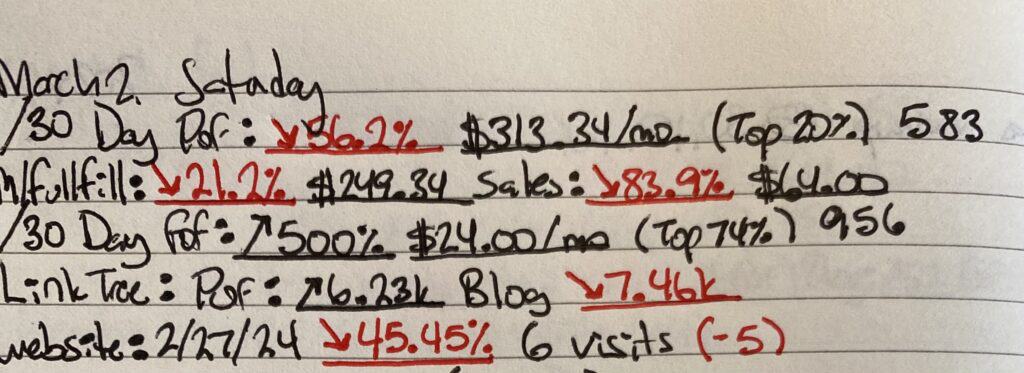 March 2. Saturday
/30 Day Pof: ↘56.2% $313.34/mo (Top 20%) 583
/fullfill: ↘21.2% $249.34 Sales: ↘83.9% $64.00
/30 Day Fof: ↗500% $24.00/mo (Top 74%) 956
Link Tree: Pof: ↗6.23k Blog ↘7.46k
website: 2/27/24 ↘45.45% 6 visits (-5)